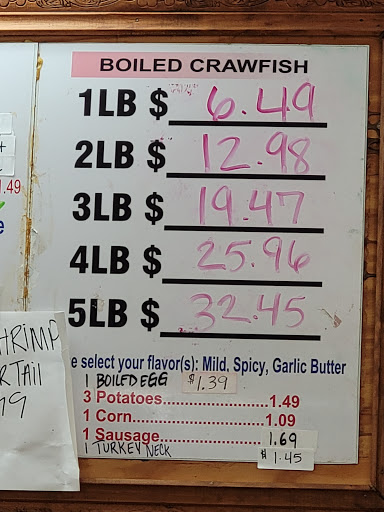 BOILED CRAWFISH
1LB $ 6.49
2LB $ 12.98
3LB $ 19.47
4LB $ 25.96
5LB $ 32.45
e select your flavor(s): Mild, Spicy, Garlic Butter
1 BOILED EGG $1.39
3 Potatoes..................1.49
1 Corn.......................1.09
1 Sausage................. 1.69
1 TURKEY NECK $1.45
.49
HRIMP
R TAIL